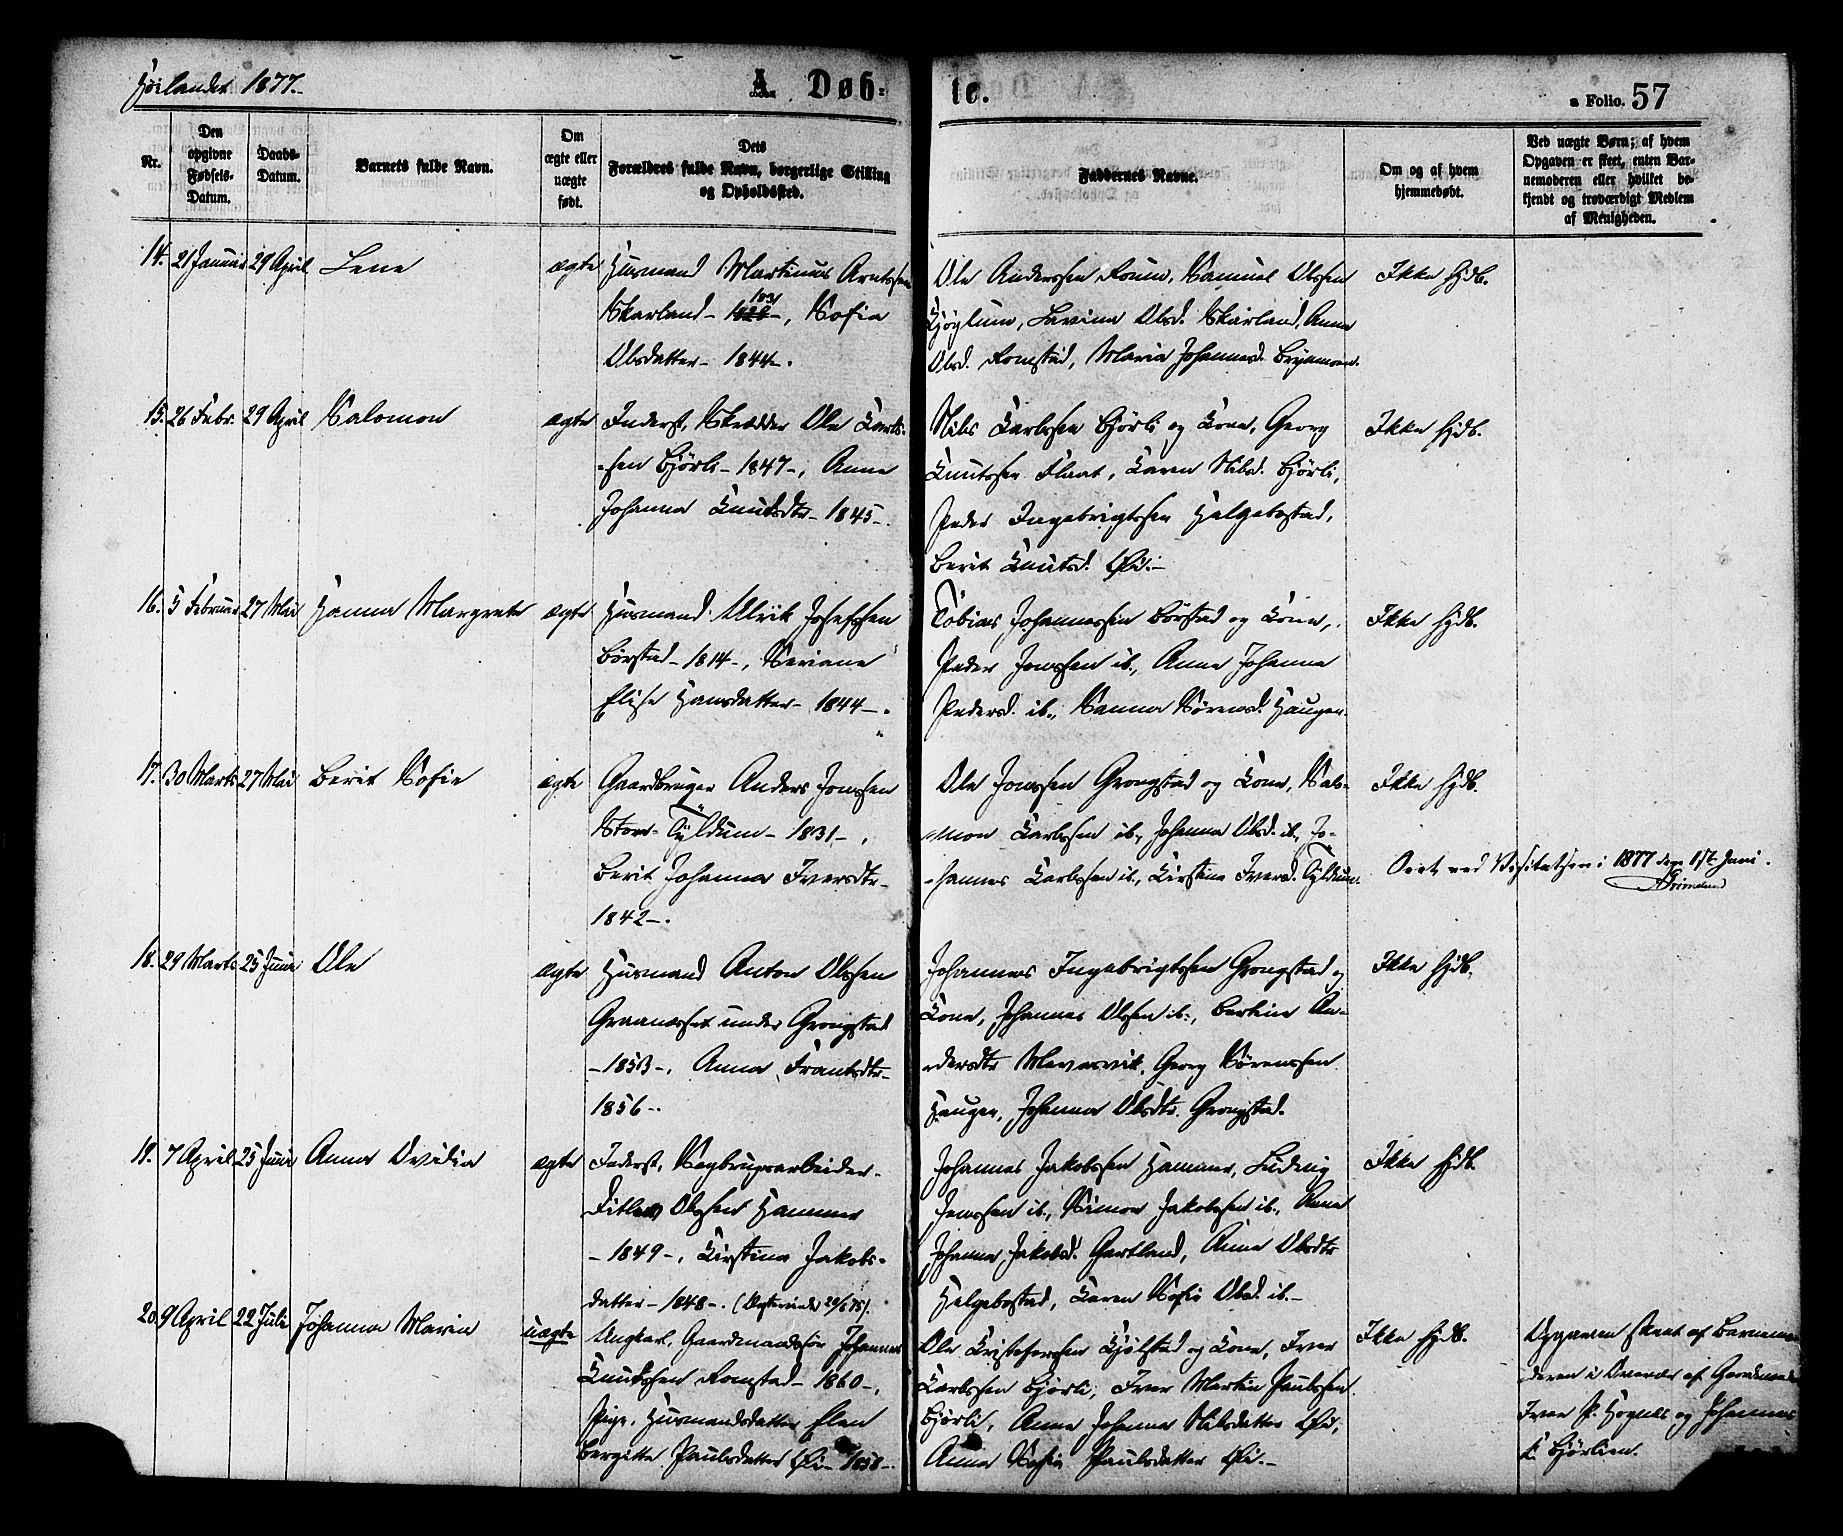 Høilandet 1877.
A. Døb-
te.
a Folio. 57
Nr.
Den opgivne Fødsels-Datum.
Daabs-Datum.
Barnets fulde Navn.
Om ægte eller uægte født.
Dets Forældres fulde Navn, borgerlige Stilling og Opholdssted.
Faddernes Navne.
Om og af hvem hjemmedøbt.
Ved uægte Børn; af hvem Opgaven er skeet, enten Barnemoderen eller hvilket bekjendt og troværdigt Medlem af Menigheden.
14. 21 Januar 29 April Lene ægte
Husmand Martinus Arntssen
Skarland - 1831 -, Sofia
Olsdatter - 1844 -.
Ole Anderssen Romo, Samuel Olssen
Kjøglum, Lavina Olsd. Skarland, Anna
Olsd. Romstad, Maria Johannesd.
Ikke hjdb.
15. 26 Febr. 29 April Salomon ægte
Inderst, Skrædder Ole Karls-
-sen Bjørli - 1847 -, Anne
Johanna Knutsdtr - 1845 -.
Nils Karlssen Bjørli og Kone, Georg
Knutssen Flaat, Karen Nilsd. Bjørli,
Peder Ingebrigtssen Helgebostad,
Berit Knutsd. Øie. -
Ikke hjdb.
16. 5 Februar 27 Mai Hanna Margrete ægte
Husmand Ulrik Josefssen
Børstad - 1814 -, Seriane
Elise Hansdatter - 1844 -.
Tobias Johannessen Børstad og Kone,
Peder Jonssen ib., Anne Johanna
Pedersd. ib., Sanna Sørensd. Haugen.
Ikke hjdb.
17. 30 Marts 27 Mai Berit Sofie ægte
Gaardbruger Anders Jonssen
Store-Tyldum - 1831 -,
Berit Johanna Iversdtr -
1842 -.
Ole Jonssen Grongstad og Kone, Salo-
-mon Karlssen ib., Johanna Olsd. ib., Jo-
-hannes Karlssen ib., Kirstine Iversd. Tyldum.
Ikke hjdb.
Seet ved Visitatsen i 1877 den 1ste Juni.
Grimelund
18. 29 Marts 25 Juni Ole ægte
Husmand Anton Olssen
Graanesset under Grongstad
- 1853 -, Anna Frantsdtr -
1856 -.
Johannes Ingebrigtssen Grongstad og
Kone, Johannes Olssen ib., Bertine An-
-dersdtr Mevasvik, Georg Sørenssen
Haugen, Johanna Olsdtr. Grongstad.
Ikke hjdb.
19. 7 April 25 Juni Anna Ovidia ægte
Inderst, Sagbrugsarbeider
Ditlev Olssen Hammer
- 1849 -, Kirstina Jakobs-
datter - 1848 -.
Johannes Jakobssen Hammer, Ludvig
Jenssen ib., Simon Jakobssen ib., Anne
Johanna Jakobsd. Gartland, Anne Olsdtr
Helgebostad, Karen Sofie Olsd. ib. -
Ikke hjdb.
20. 9 April 22 Juli Johanna Maria uægte
Ungkarl, Gaardmandssøn Johannes
Knutssen Romstad - 1860 -,
Pige, Husmandsdatter Elen
Bergitte Paulsdatter Øie - 1858 -.
Ole Kristofersen Kjølstad og Kone, Iver
Karlssen Bjørli, Iver Martin Paulssen
Bjørli, Anne Johanna Nilsdatter Øie,
Anna Sofie Paulsdatter Øie. -
Ikke hjdb.
Opgaven skeet af Barnemo-
deren i Overvær af Gaardmænd
Iver P. og Johannes
K. Bjørlien.